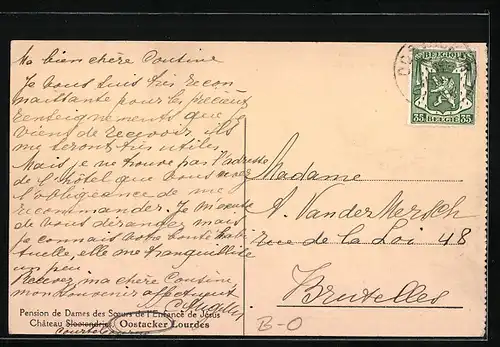 Ma bien chère Cousine
Je vous suis très recon
naissante pour les précieux
renseignements que je
viens de recevoir, ils
me seront très utiles.
Mais, je ne trouve pas l'adresse
de l'hôtel que vous avez
l'obligeance de me
recommander. Je m'excuse
de vous déranger mais
je connais votre bonté habi
tuelle, elle me tranquillise
un peu
Recevez, ma chère Cousine,
mon souvenir affectueux
Pension de Dames des Sœurs de l'Enfance de Jésus
Château Slootendries Oostacker Lourdes
BELGIQUE
35 BELGIE 35
Madame
A. VanderMersch
rue de la Loi 48
Bruxelles
B-O